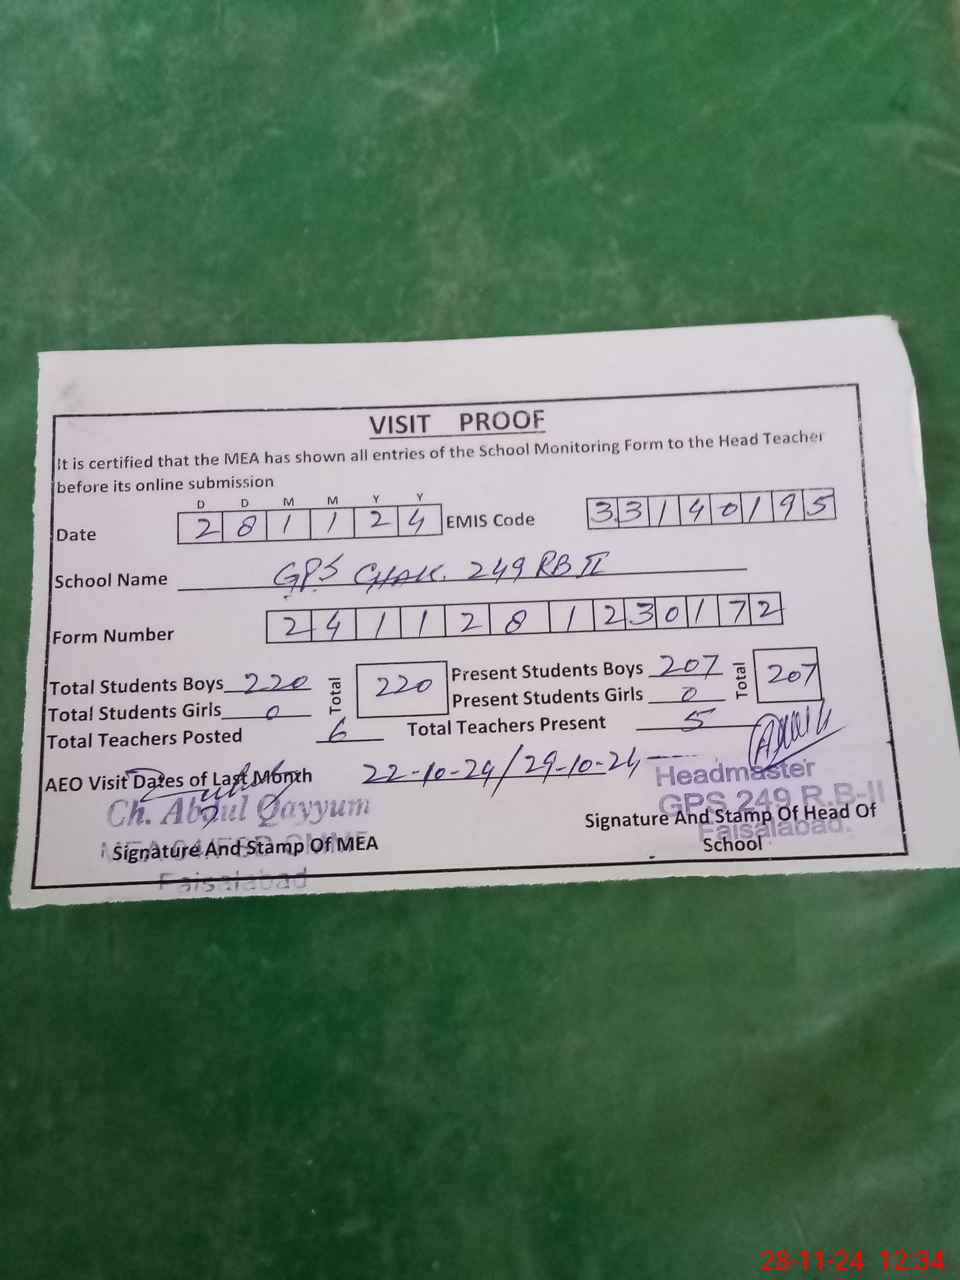 VISIT PROOF
It is certified that the MEA has shown all entries of the School Monitoring Form to the Head Teacher
before its online submission
D D M M Y Y
Date 2 8 1 1 2 4 EMIS Code 3 3 1 4 0 1 9 5
School Name GPS CHAK. 249 RB II
Form Number 2 4 1 1 2 8 1 2 3 0 1 7 2
Total Students Boys 220 Total 220 Present Students Boys 207 Total 207
Total Students Girls 0 Present Students Girls 0
Total Teachers Posted 6 Total Teachers Present 5
AEO Visit Dates of Last Month 22-10-24/29-10-24
Ch. Abdul Qayyum
Signature And Stamp Of MEA
Faisalabad
Headmaster
GPS 249 R.B-II
Faisalabad.
Signature And Stamp Of Head Of
School
28-11-24 12:34